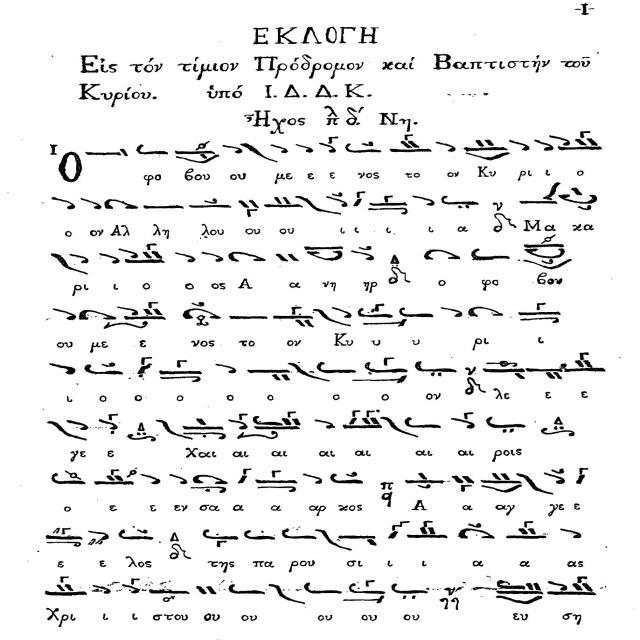 -1-
ΕΚΛΟΓΗ
Είς τόν τίμιον Πρόδρομον καί Βαπτιστήν τοῦ
Κυρίου. ὑπό Ι. Δ. Δ. Κ.
Ἦχος λ π δ΄. Νη.
1 Ο φο βου ου με ε ε νος το ον Κυ ρι ι ο
ο ον Αλ λη λου ου ου ι ι ι ι α Μα κα
ρι ι ο ο ος Α α νη ηρ ο φο βου
ου με ε νος το ον Κυ υ υ ρι ι
ι ο ο ο ο ο ο ον λε ε ε
γε ε Χαι αι αι αι αι αι αι ροις
ο ε ε εν σα α α αρ κος Α α αγ γε ε
ε ε λος της πα ρου σι ι ι α α ας
Χρι ι ι στου ου ου ου ου ου ευ ση